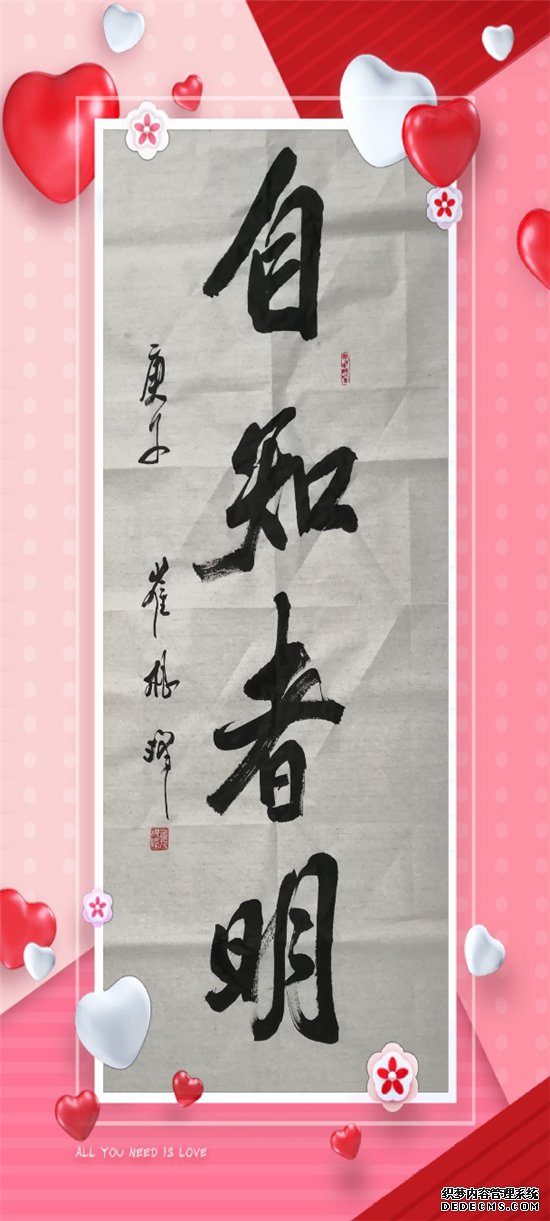 自知者明
庚子
ALL YOU NEED IS LOVE
织梦内容管理系统
DEDECMS.COM